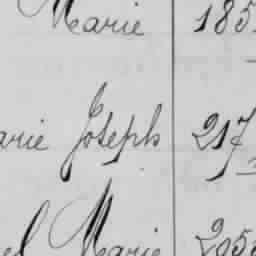 Marie 185
arie Joseph 217
el Marie 205